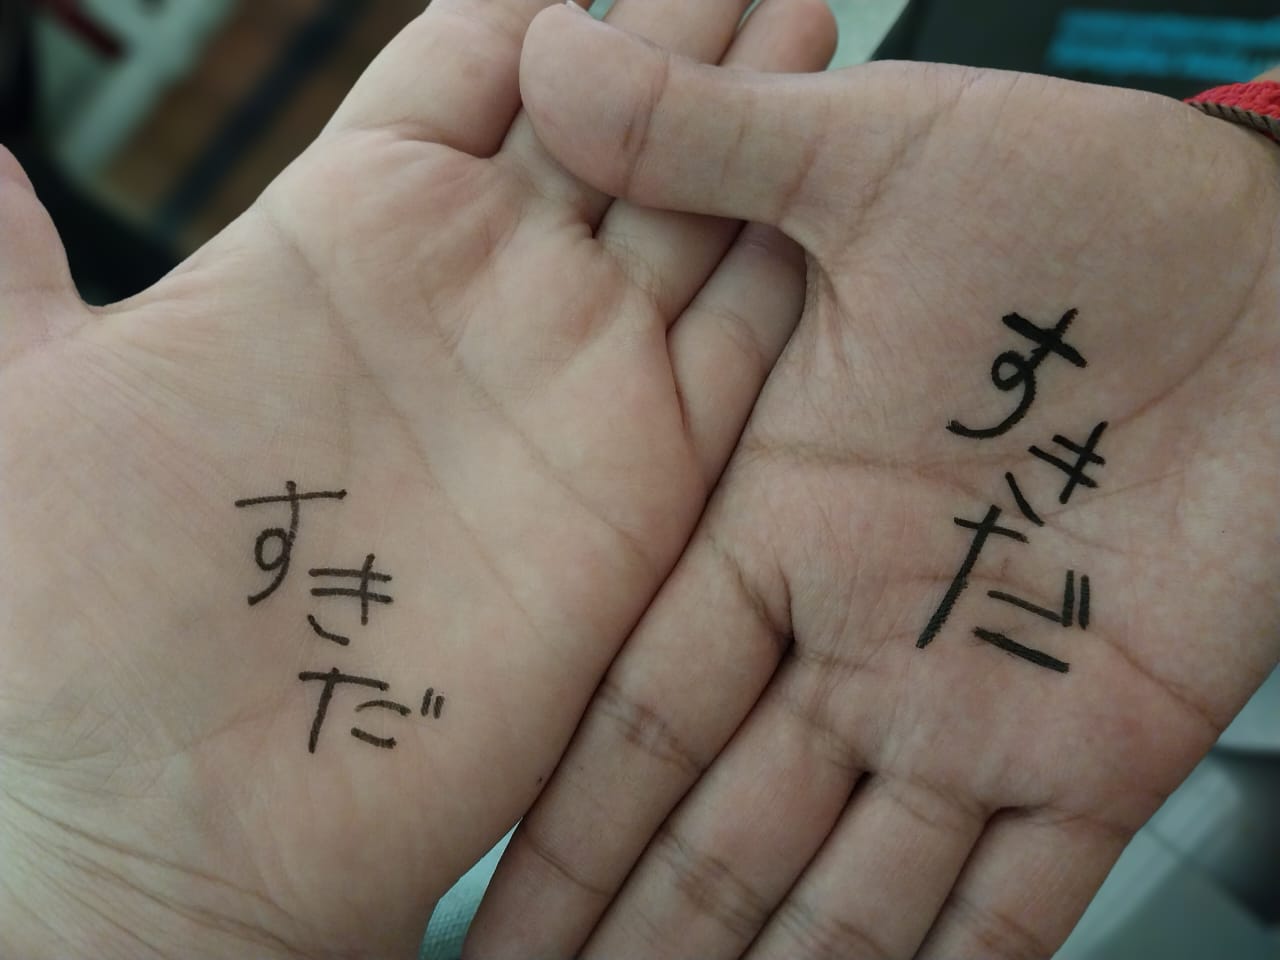 すきだ
すきだ